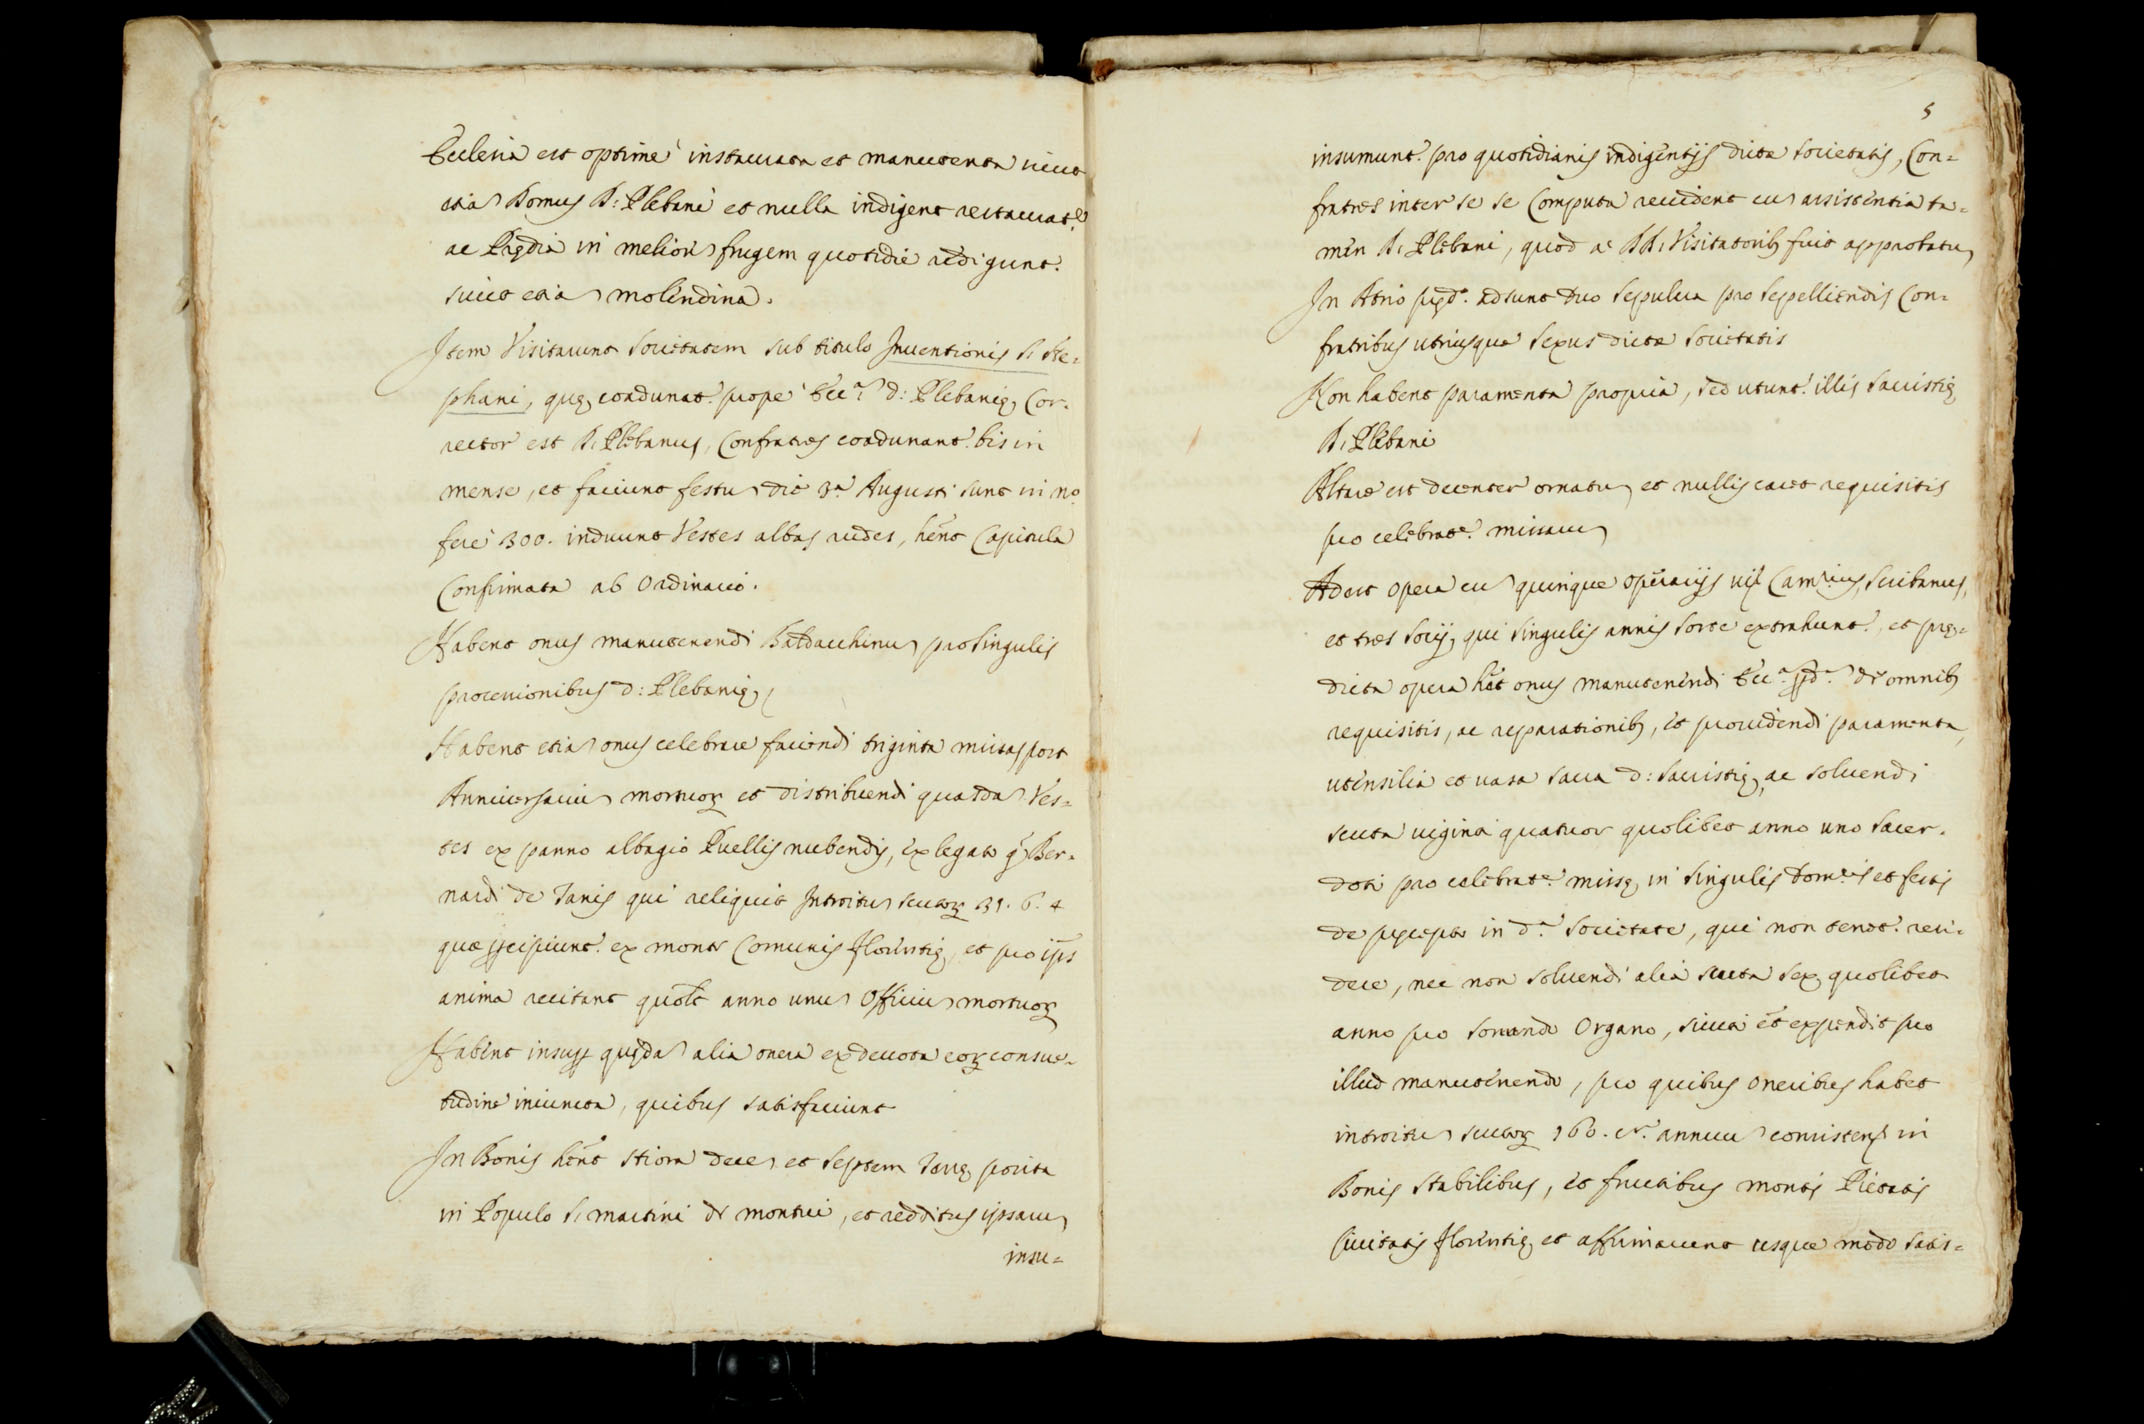 Ecclesia est optime instaurata et manutenta sicut
etiā Domus D: Plebani et nulla indigent restaurat.e
ac Prędia in meliorē frugem quotidie redigunt.
sicut etiā molendina.
Item Visitaverunt Societatem sub titulo Inventionis S. Ste-
phani, quę coadunat.r prope Ecc.m d: Plebanię, Cor-
rector est D. Plebanus, Confratres coadunant.r bis in
mense, et faciunt festū die 3.a Augusti sunt in n.o
fere 300. induunt Vestes albas rudes, hēnt Capitula
Confirmata ab Ordinario.
Habent onus manutenendi Baldacchinū pro singulis
processionibus d: Plebanię,
Habent etiā onus celebrare faciendi triginta missas post
Anniversariū mortuoꝝ et distribuendi quasdā Ves-
tes ex panno albagio Puellis nubendis, ex legato q̄ Ber-
nardi de Tanis qui reliquit Introitū scutoꝝ 31. 6. 4
quæ ꝑcipiunt.r ex monte Comunis Florentię, et pro ip̄s
anima recitant quolt anno unū Officiū mortuoꝝ
Habent insuꝑ quędā alia onera ex devota eoꝝ consue-
tudine iniuncta, quibus satisfaciunt
In Bonis hēnt Stiora decē et septem terrę posita
in Populo S. Martini de montui, et redditus ipsarū
insu-
5
insumunt.r pro quotidianis indigentijs dictæ Societatis, Con-
fratres inter se se Computa revident cū assistentia ta-
men D. Plebani, quod a DD. Visitatoribꝫ fuit approbatū
In Atrio pręd.o adsunt duo Sepulcra pro sepelliendis Con-
fratribus utriusque sexus dictæ Societatis
Non habent paramenta propria, sed utunt.r illis Sacristię
D. Plebani
Altare est decenter ornatū et nullis caret requisitis
pro celebrat.e missarū
Adest Opera cū quinque operarijs vz Cam.rius, Scribanus,
et tres Socij, qui singulis annis sorte extrahunt.r, et prę-
dicta opera hēt onus manutenendi Ecc.m pd.m de omnibꝫ
requisitis, ac reparationibꝫ, et providendi paramenta,
utensilia et vasa sacra d: Sacristię, ac solvendi
scuta viginti quatuor quolibet anno uno Sacer-
doti pro celebrat.e missę in singulis dom.cis et festis
de pręcepto in d.a Societate, qui non tenet.r resi-
dere, nec non solvendi alia scuta sex quolibet
anno pro sonando Organo, sicuti et expendit pro
illud manutenendo, pro quibus oneribus habet
introitū scutoꝝ 160. c.a annuū consisteñ in
Bonis stabilibus, et fructibus montis Pietatis
Civitatis Florentię et affirmaverunt usque modo satis-